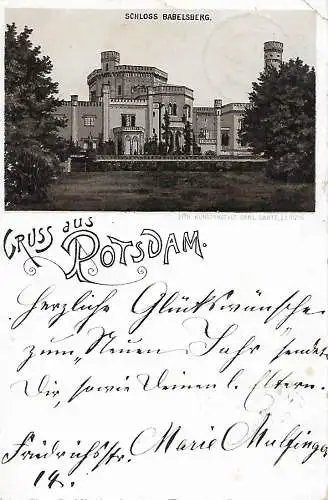 SCHLOSS BABELSBERG.
LITH. KUNSTANSTALT CARL GARTE, LEIPZIG
Gruss aus
Potsdam.
Herzliche Glückwünsche
zum „Neuen Jahr" sendet
Dir, sowie Deinen l. Eltern.
Friedrichsstr. Marie Mulfinger
14.